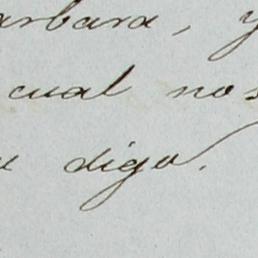 arbara, y
cual nos
digo.